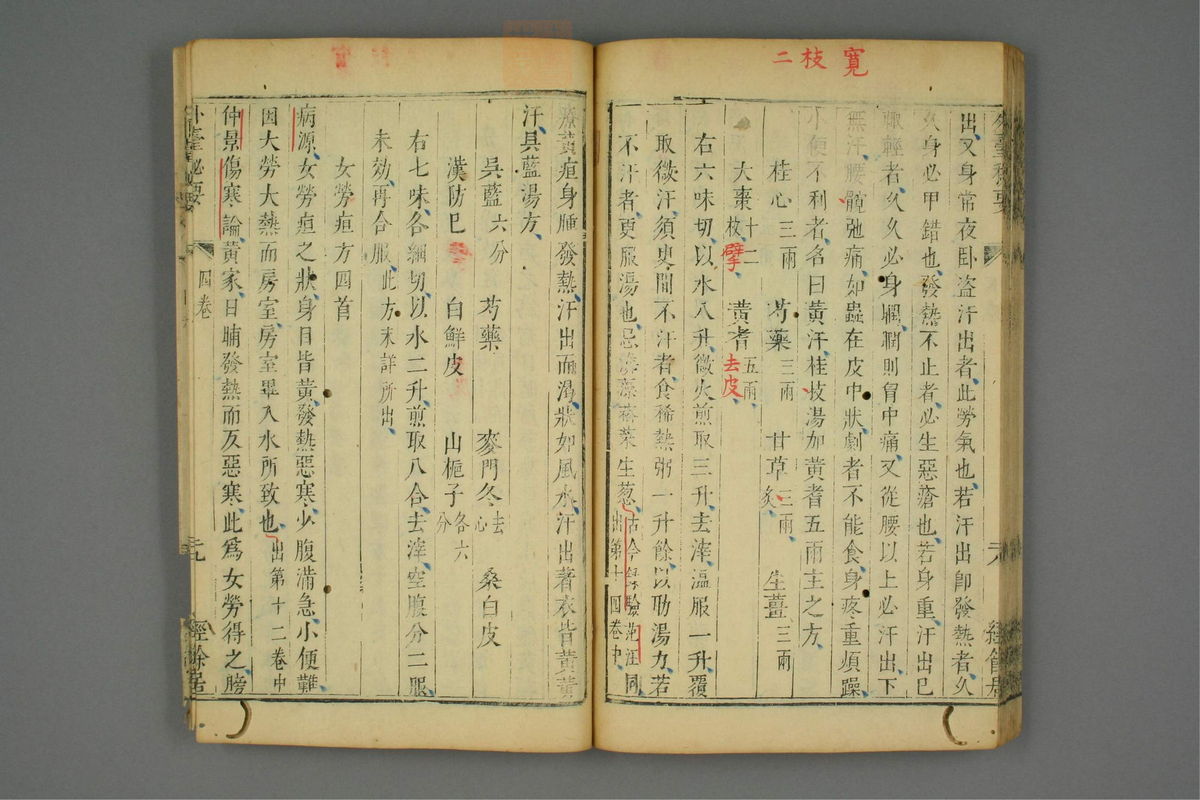 寬
枝
二
外臺秘要
出又身常夜卧盜汗出者此勞氣也若汗出卽發熱者久
久身必甲錯也發熱不止者必生惡瘡也若身重汗出已
輒輕者久久必身瞤瞤則胷中痛又從腰以上必汗出下
無汗腰髖弛痛如蟲在皮中狀劇者不能食身疼重煩躁
小便不利者名曰黃汗桂枝湯加黃耆五兩主之方
桂心三兩 芍藥三兩 甘草三兩炙 生薑三兩
大棗十二枚擘 黃耆五兩去皮
右六味切以水八升微火煎取三升去滓溫服一升覆
取微汗須臾間不汗者食稀熱粥一升餘以助湯力若
不汗者更服湯也忌海藻菘菜生葱古今錄驗范汪同出第十四卷中
療黃疸身腫發熱汗出而渴狀如風水汗出著衣皆黃黃
汗具藍湯方
吳藍六分 芍藥 麥門冬去心 桑白皮
漢防已 白鮮皮 山梔子各六分
右七味各細切以水二升煎取八合去滓空腹分二服
未效再合服此方未詳所出
女勞疸方四首
病源女勞疸之狀身目皆黃發熱惡寒少腹滿急小便難
因大勞大熱而房室房室畢入水所致也出第十二卷中
仲景傷寒論黃家日晡發熱而反惡寒此爲女勞得之膀
外臺必要 四卷 經餘居